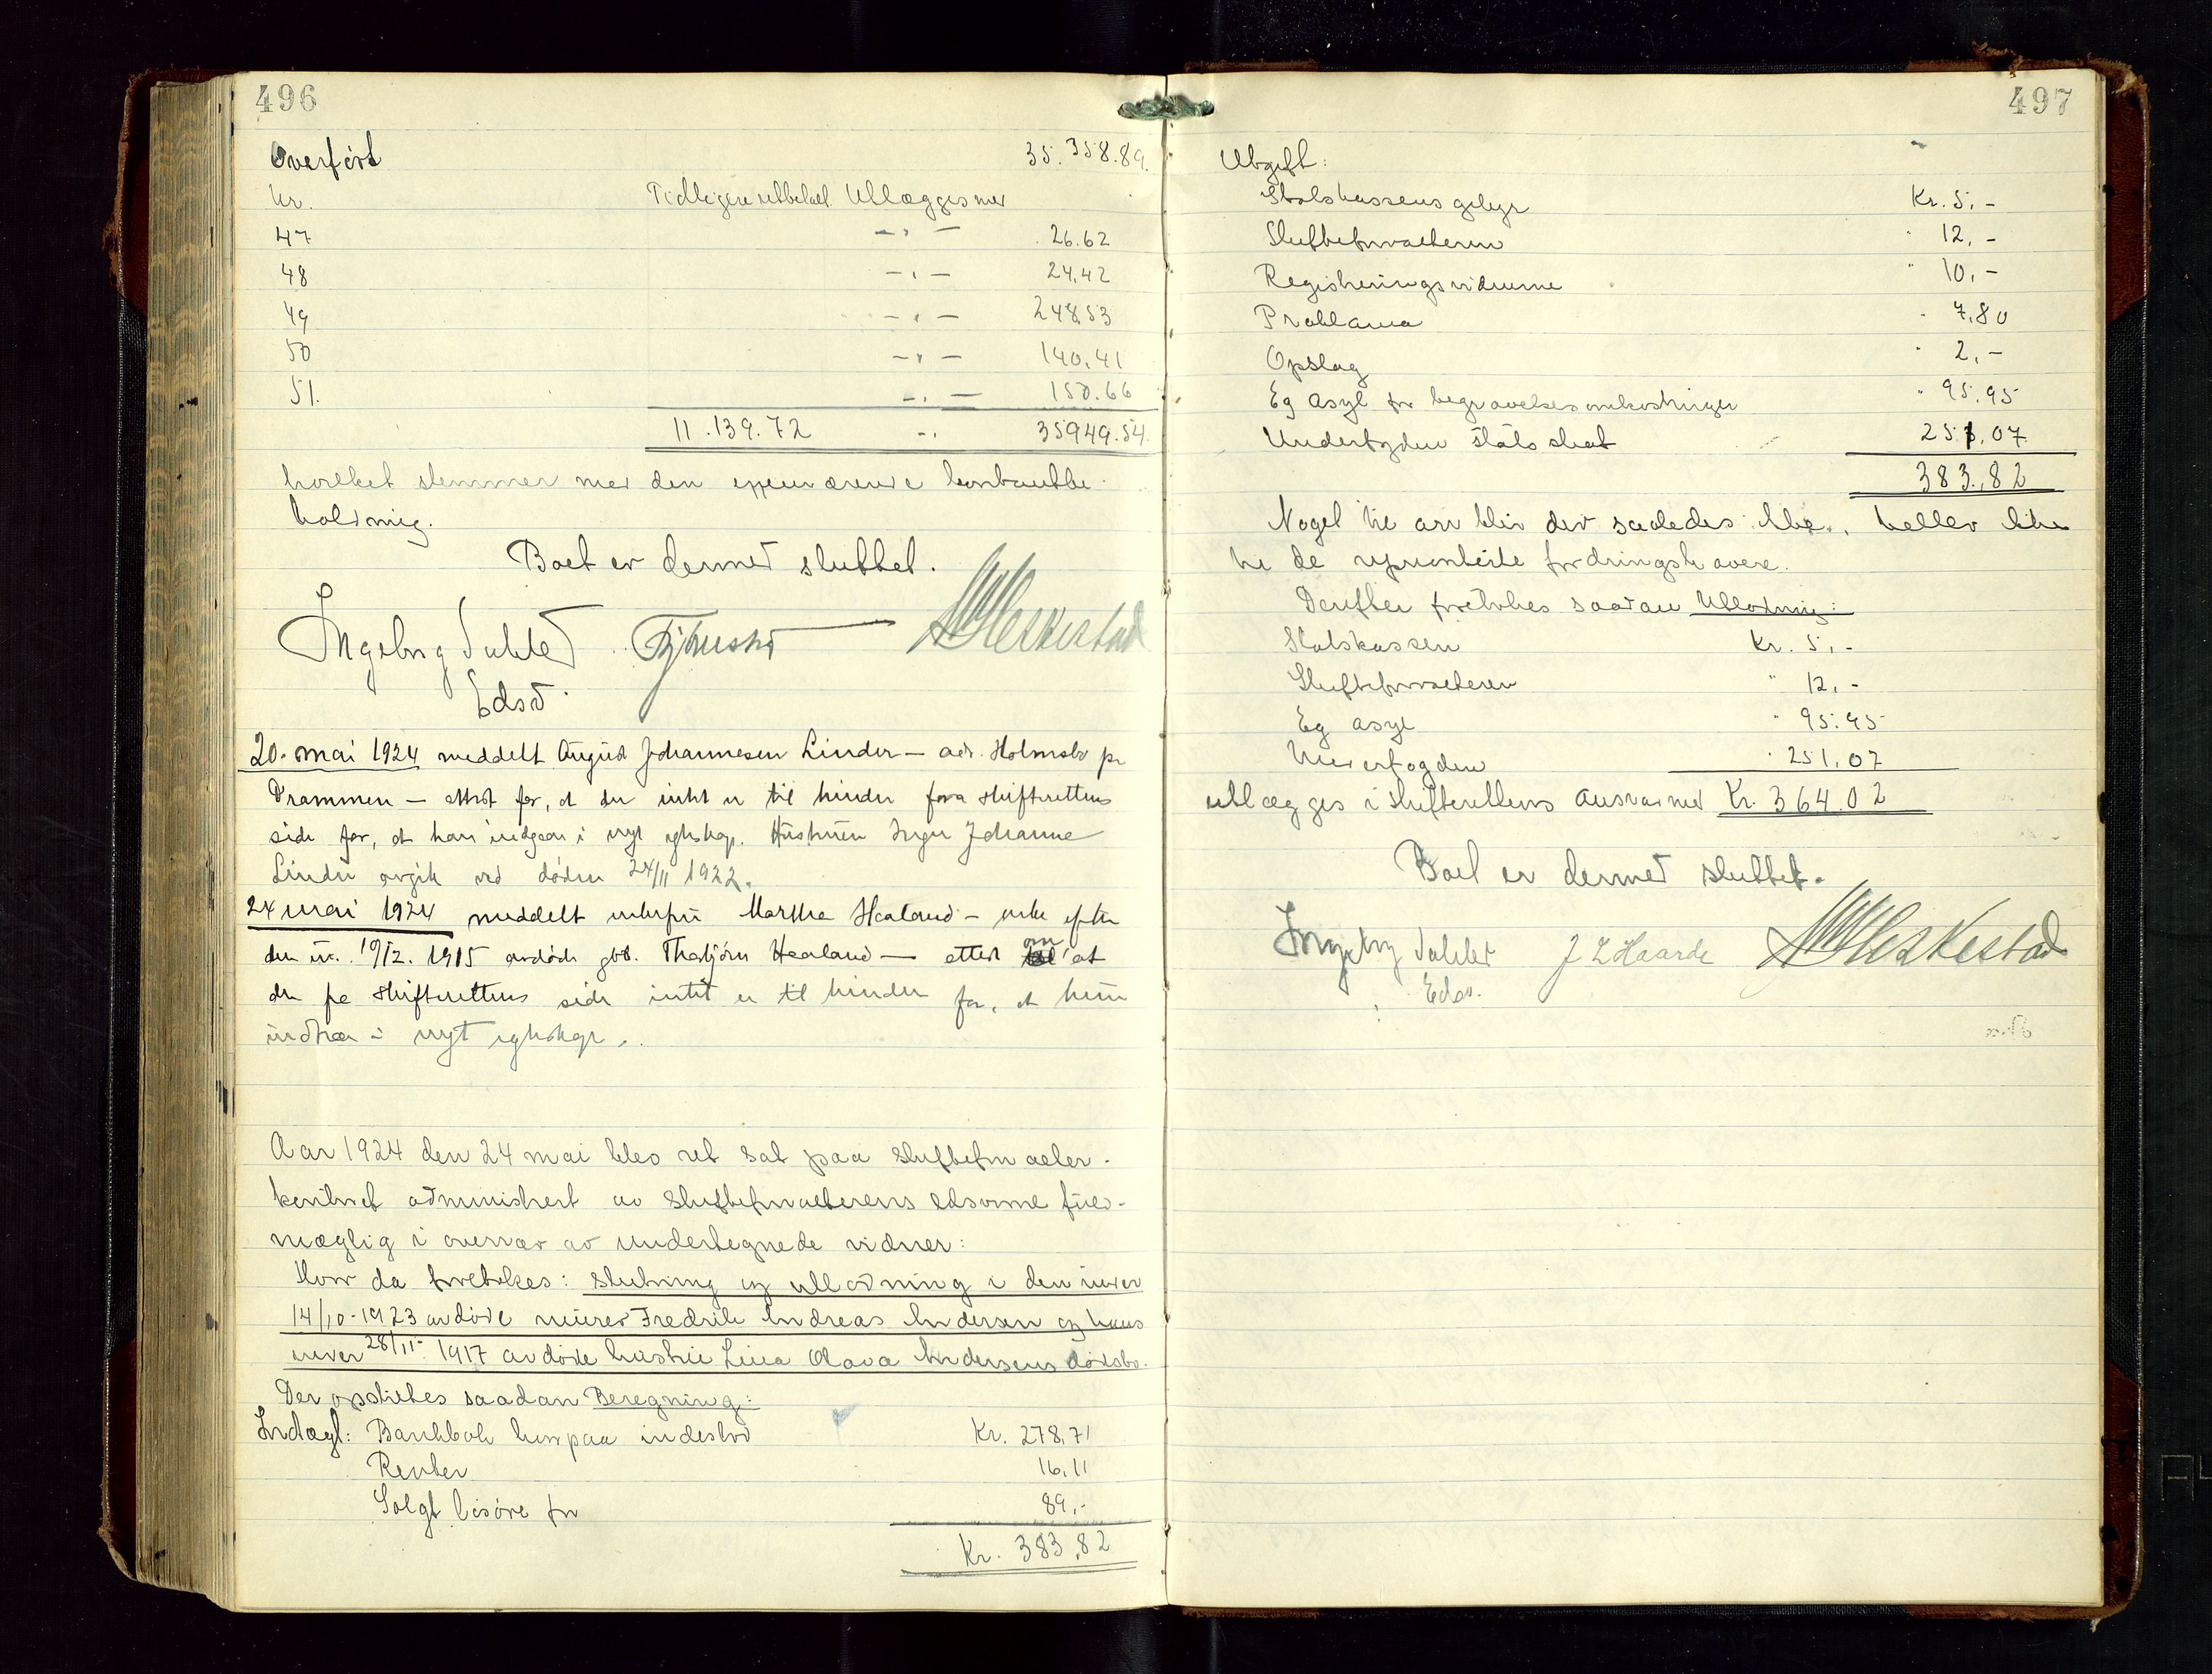 496
Overført 35.358.89.
Nr. Tidligere utbetalt Utlægges med
47 - " - 26.62
48 - " - 24.42
49 - " - 248.53
50 - " - 140.41
51. - " - 150.66
11.139.72 - " 35949.54.
hvilket stemmer med den oppeværende kontantbe-
holdning.
Boet er dermed sluttet.
Ingeborg Dahle Heskestad
Edsv.
20. mai 1924 meddelt August Johannesen Linder - adr. Holmsbo pr
Drammen - attest for, at der intet er til hinder fra skifterettens
side for, at han indgaar i nyt egteskap. Hustruen Inger Johanne
Linder avgik ved døden 24/11 1922.
24 mai 1924 meddelt enkefru Martha Haaland - enke efter
den 19/12. 1915 avdøde gbr. Thorbjørn Haaland - attest om at
der fra skifterettens side intet er til hinder for, at hun
indtrær i nyt egteskap.
Aar 1924 den 24 mai blev ret sat paa skifteforvalter-
kontoret administrert av skifteforvalterens edsvorne fuld-
mægtig i overvær av undertegnede vidner:
Hvor da foretokes: slutning og utlodning i den under
14/10-1923 avdøde murer Fredrik Andreas Andersen og hans
under 28/11 1917 avdøde hustru Lina Olava Andersens dødsbo.
Der opstilles saadan Beregning:
Indtægt: Bankbok hvorpaa indestod Kr. 278,71
Renter 16,11
Solgt løsøre for 89,-
Kr. 383,82
497
Utgift:
Statskassens gebyr Kr. 5,-
Skifteforvalteren " 12,-
Registreringsvidnerne " 10,-
Proklama " 7,80
Opslag " 2,-
Eg asyl for begravelsesomkostninger " 95,95
Underfogden statsskat 251,07
383,82
Noget til arv blir der saaledes ikke, heller ikke
til de uprioriterte fordringshavere.
Derefter foretokes saadan Utlodning:
Statskassen Kr. 5,-
Skifteforvalteren " 12,-
Eg asyl " 95.95
Underfogden " 251,07
utlægges i skifterettens ansvar med Kr. 364.02
Boet er dermed sluttet.
Ingeborg Dahle J L Haarde Heskestad
Edsv.